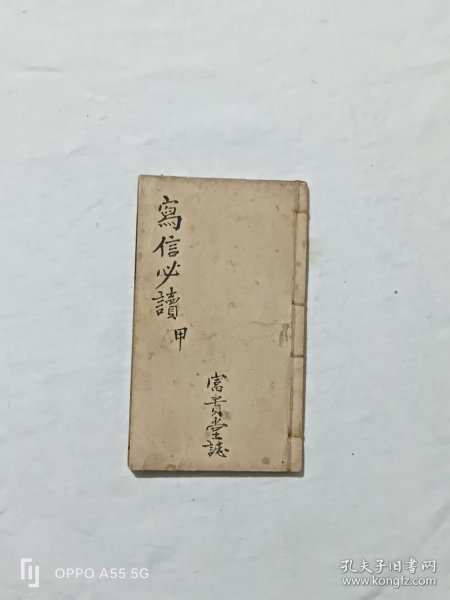 寫信必讀
甲
富貴堂誌
OPPO A55 5G
孔夫子旧书网
www.kongfz.com